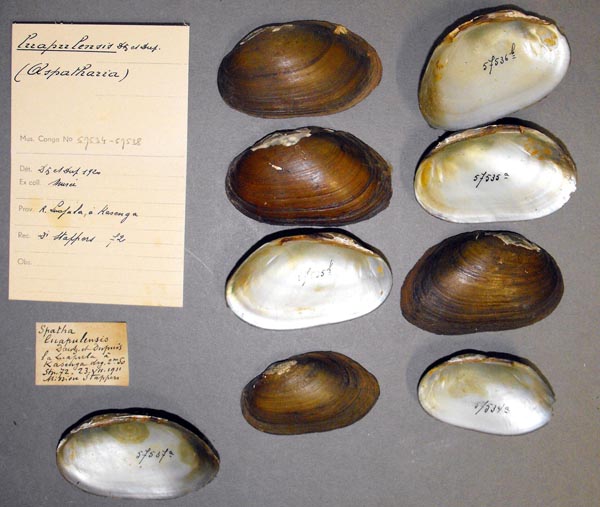 Luapulensis Dtz et Dup.
(Aspatharia)
Mus. Congo No 57534-57538
Dét. Dtz et Dup 1920
Ex coll. Musée
Prov. R. Luapula, à Kasenga
Rec. Dr Stappers
Obs.
Spatha
luapulensis
Dautz. et Dupuis
la Luapula à
Kasenga
Stn. 72, 23.VII.1911
Mission Stappers
57536
57535a
57534a
57537a